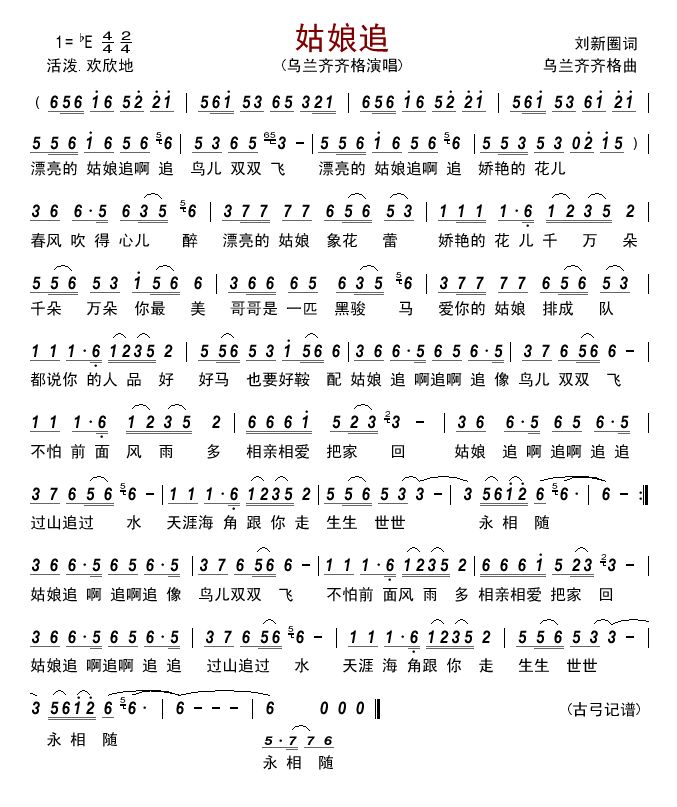 姑娘追
1=♭E 4/4 2/4
刘新圈词
活泼.欢欣地
(乌兰齐齐格演唱)
乌兰齐齐格曲
( 656 i6 52 21 | 561 53 65 321 | 656 i6 52 21 | 561 53 31 61 |
556 i65 56 | 5365 653 - | 556 i65 56 | 553 53 02 15 ) |
漂亮的 姑娘追啊 追 鸟儿 双双 飞 漂亮的 姑娘追啊 追 娇艳的 花儿
36 6·5 635 56 | 377 77 656 53 | 111 1·6 1235 2
春风 吹 得 心儿 醉 漂亮的 姑娘 象花 蕾 娇艳的 花 儿 千 万 朵
556 53 i56 6 | 366 65 635 56 | 377 77 656 53 |
千朵 万朵 你最 美 哥哥是 一匹 黑骏 马 爱你的 姑娘 排成 队
11 1·6 1235 2 | 556 53 i56 6 | 36 6·5 65 6·5 | 376 56 6 - |
都说你 的人 品 好 好马 也要好鞍 配 姑娘 追 啊追啊 追 像 鸟儿 双双 飞
11 1·6 1235 2 | 666i 523 23 - | 36 6·5 65 6·5 |
不怕 前 面 风 雨 多 相亲相爱 把家 回 姑娘 追 啊 追啊 追 追
376 56 56 - | 111·6 1235 2 | 556 53 3 - | 3 56i2 6 56· | 6 - :|
过山追过 水 天涯海 角 跟 你 走 生生 世世 永 相 随
366·5 65 6·5 | 376 56 6 - | 111·6 1235 2 | 666i 523 23 - |
姑娘追 啊 追啊追 像 鸟儿双双 飞 不怕前 面风 雨 多 相亲相爱 把家 回
366·5 65 6·5 | 376 56 56 - | 111·6 1235 2 | 556 53 3 - |
姑娘追 啊追啊 追 追 过山追过 水 天涯 海 角跟 你 走 生生 世世
3 56i2 6 56· | 6 - - - | 6 0 0 0 ‖
(古弓记谱)
永 相 随
5·7 76
永 相 随